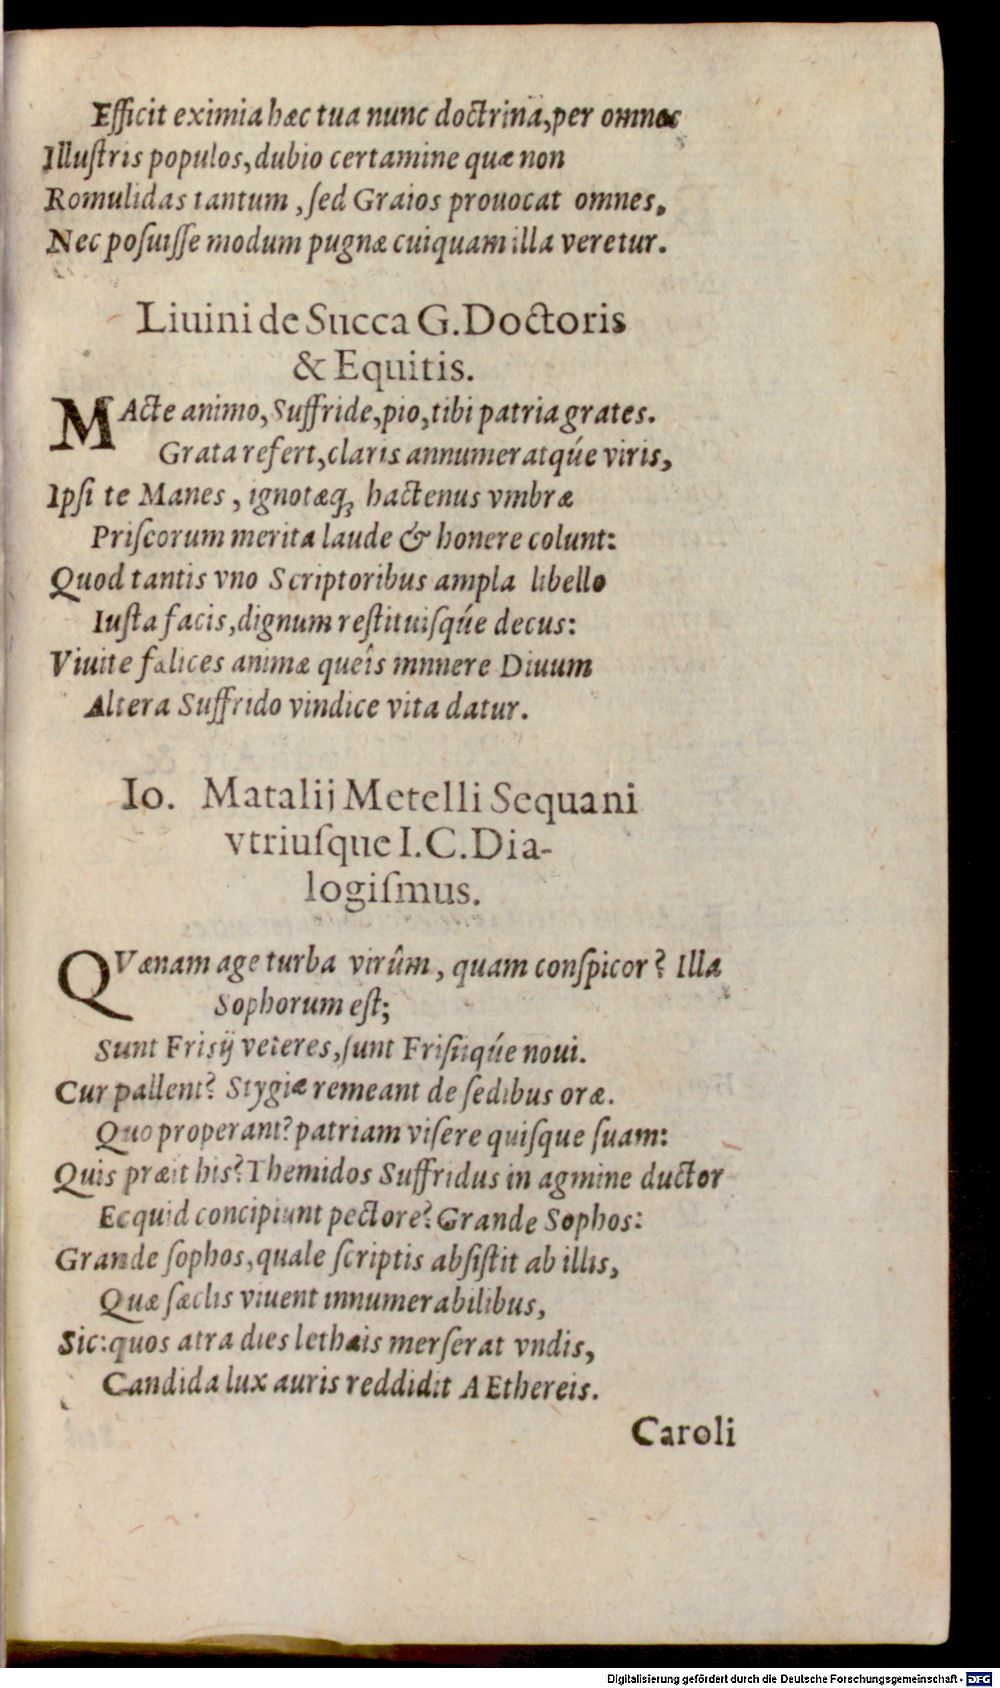 Efficit eximia hæc tua nunc doctrina, per omnes
Illuſtris populos, dubio certamine quæ non
Romulidas tantum, ſed Graios prouocat omnes,
Nec poſuiſſe modum pugnæ cuiquam illa veretur.
Liuini de Succa G. Doctoris
& Equitis.
MActe animo, Suffride, pio, tibi patria grates.
Grata refert, claris annumeratqúe viris,
Ipſi te Manes, ignotæq; hactenus vmbræ
Priſcorum merita laude & honere colunt:
Quod tantis vno Scriptoribus ampla libello
Iuſta facis, dignum reſtituiſqúe decus:
Viuite fælices animæ queîs mnnere Diuum
Altera Suffrido vindice vita datur.
Io. Matalij Metelli Sequani
vtriuſque I. C. Dia-
logiſmus.
QVænam age turba virûm, quam conſpicor? Illa
Sophorum eſt;
Sunt Friſij veteres, ſunt Friſiiqúe noui.
Cur pallent? Stygiæ remeant de ſedibus oræ.
Quo properant? patriam viſere quiſque ſuam:
Quis præit his? Themidos Suffridus in agmine ductor
Ecquid concipiunt pectore? Grande Sophos:
Grande ſophos, quale ſcriptis abſiſtit ab illis,
Quæ ſæclis viuent innumerabilibus,
Sic: quos atra dies lethæis merſerat vndis,
Candida lux auris reddidit AEthereis.
Caroli
Digitalisierung gefördert durch die Deutsche Forschungsgemeinschaft - DFG